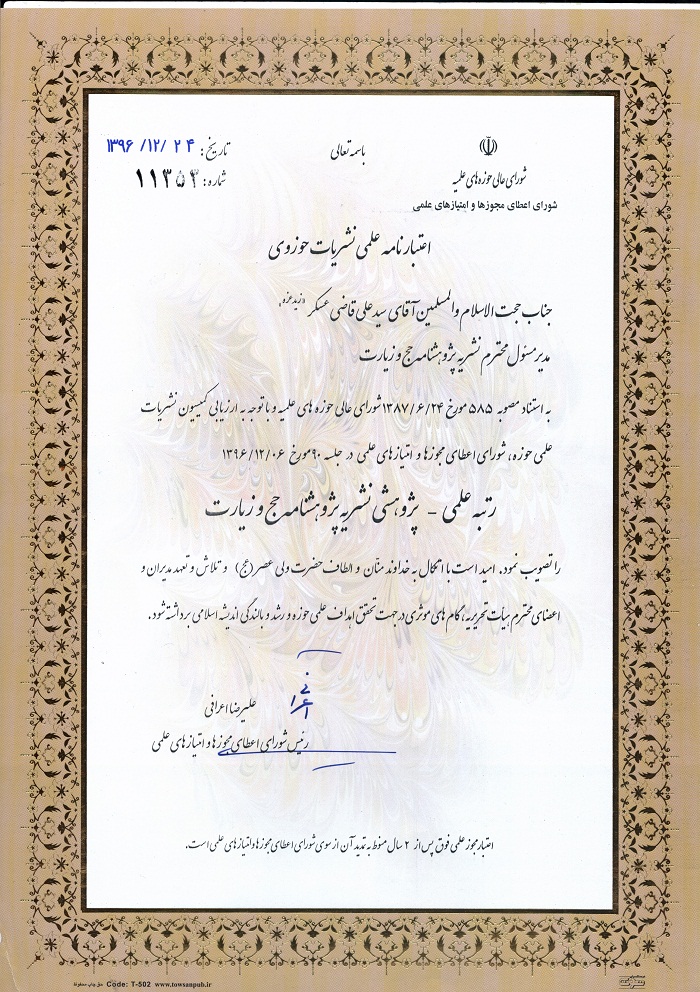 باسمه تعالی
شورای عالی حوزه های علمیه
شورای اعطای مجوزها و امتیازهای علمی
تاریخ: ۱۳۹۶/۱۲/۲۴
شماره: ۱۱۳۵۴
اعتبارنامه علمی نشریات حوزوی
جناب حجت الاسلام والمسلمین آقای سید علی قاضی عسکر «زید عزه»
مدیر مسئول محترم نشریه پژوهشنامه حج و زیارت
به استناد مصوبه ۵۸۵ مورخ ۱۳۸۷/۶/۲۴ شورای عالی حوزه های علمیه و با توجه به ارزیابی کمیسیون نشریات
علمی حوزه، شورای اعطای مجوزها و امتیازهای علمی در جلسه ۹۰ مورخ ۱۳۹۶/۱۲/۰۶
رتبه علمی - پژوهشی نشریه پژوهشنامه حج و زیارت
را تصویب نمود. امید است با اتکال به خداوند منّان و الطاف حضرت ولی عصر (عج) و تلاش و تعهد مدیران و
اعضای محترم هیأت تحریریه، گام های موثری در جهت تحقق اهداف علمی حوزه و رشد و بالندگی اندیشه اسلامی برداشته شود.
علیرضا اعرافی
رئیس شورای اعطای مجوزها و امتیازهای علمی
اعتبار مجوز علمی فوق پس از ۲ سال منوط به تمدید آن از سوی شورای اعطای مجوزها و امتیازهای علمی است.
حق چاپ محفوظ Code: T-502 www.towsanpub.ir